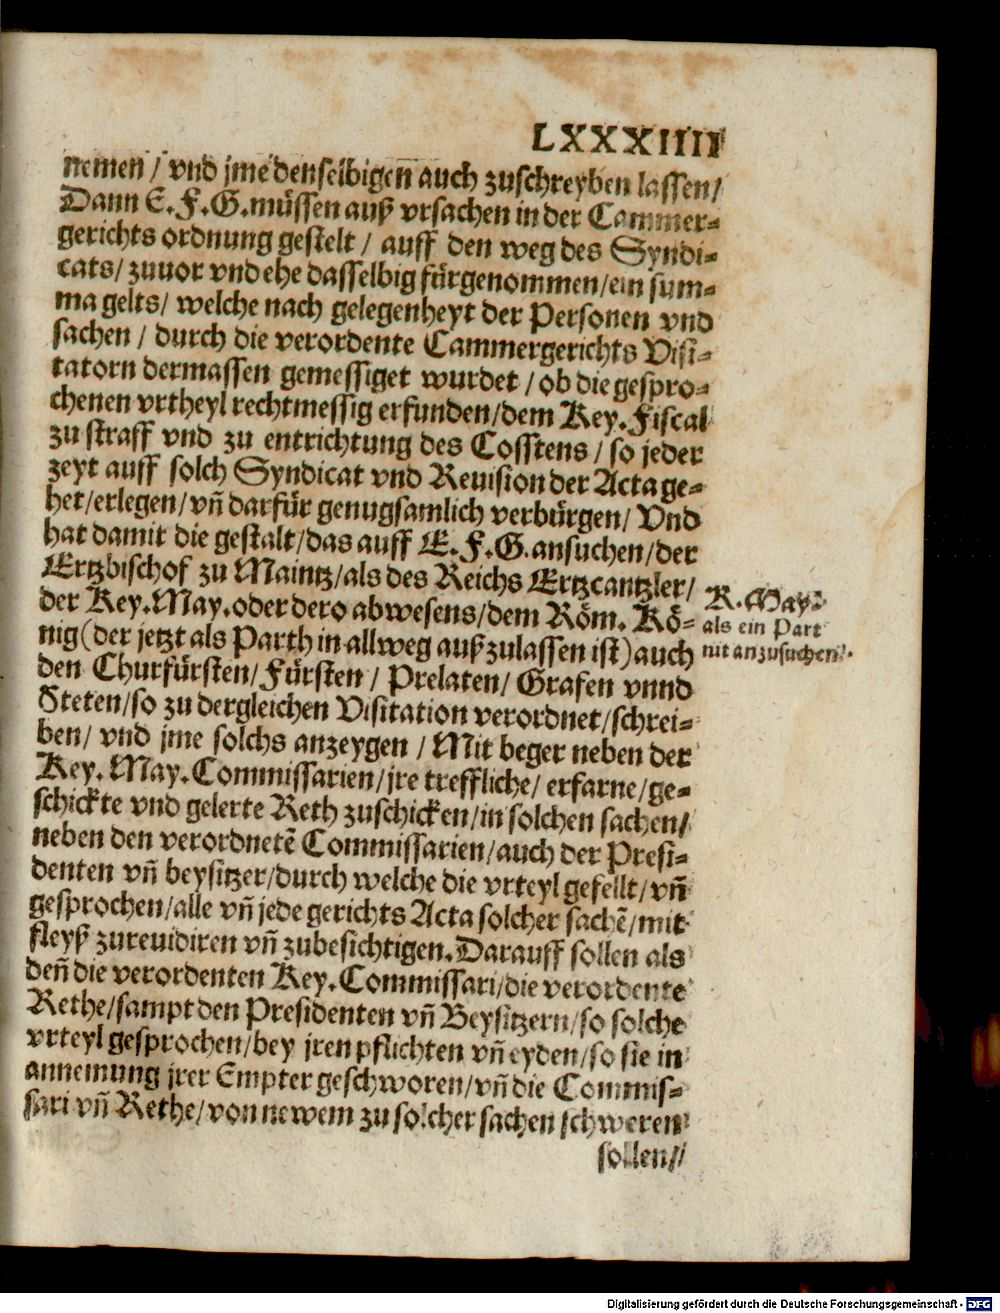 LXXXIIII
nemen / vnd jme denselbigen auch zuschreyben lassen /
Dann E. F. G. müssen auß vrsachen in der Cammer-
gerichts ordnung gestelt / auff den weg des Syndi-
cats / zuuor vnd ehe dasselbig fürgenommen / ein sum-
ma gelts / welche nach gelegenheyt der Personen vnd
sachen / durch die verordente Cammergerichts Visi-
tatorn dermassen gemessiget wurdet / ob die gespro-
chenen vrtheyl rechtmessig erfunden / dem Key. Fiscal
zu straff vnd zu entrichtung des Cosstens / so jeder
zeyt auff solch Syndicat vnd Reuision der Acta ge-
het / erlegen / vñ darfür genugsamlich verbürgen / Vnd
hat damit die gestalt / das auff E. F. G. ansuchen / der
Ertzbischof zu Maintz / als des Reichs Ertzcantzler /
der Key. May. oder dero abwesens / dem Röm. Kö-
nig (der jetzt als Parth in allweg außzulassen ist) auch
den Churfürsten / Fürsten / Prelaten / Grafen vnnd
Steten / so zu dergleichen Visitation verordnet / schrei-
ben / vnd jme solchs anzeygen / Mit beger neben der
Key. May. Commissarien / jre treffliche / erfarne / ge-
schickte vnd gelerte Reth zuschicken / in solchen sachen /
neben den verordnetẽ Commissarien / auch der Presi-
denten vñ beysitzer / durch welche die vrteyl gefellt / vñ
gesprochen / alle vñ jede gerichts Acta solcher sachẽ / mit
fleyß zureuidiren vñ zubesichtigen. Darauff sollen als
deñ die verordenten Key. Commissari / die verordente
Rethe / sampt den Presidenten vñ Beysitzern / so solche
vrteyl gesprochen / bey jren pflichten vñ eyden / so sie in
annemung jrer Empter geschworen / vñ die Commis-
sari vñ Rethe / von newem zu solcher sachen schweren
sollen /
K. May.
als ein Part
nit anzusuchen.
Digitalisierung gefördert durch die Deutsche Forschungsgemeinschaft - DFG